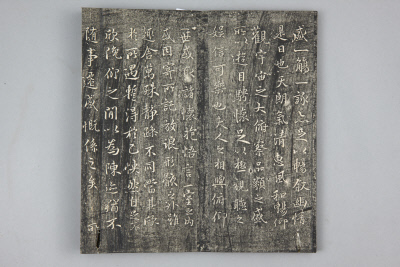 盛一觴一詠亦足以暢敘幽情
是日也天朗氣清惠風和暢仰
觀宇宙之大俯察品類之盛
所以遊目騁懷足以極視聽之
娛信可樂也夫人之相與俯仰
一世或取諸懷抱悟言一室之內
或因寄所託放浪形骸之外雖
趣舍萬殊靜躁不同當其欣
於所遇暫得於己快然自足
欣俛仰之間以為陳迹猶不
隨事遷感慨係之矣